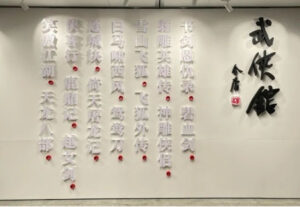 武俠館
金庸
书剑恩仇录 碧血剑
射雕英雄传 神雕侠侣
雪山飞狐 飞狐外传
白马啸西风 鸳鸯刀
连城诀 倚天屠龙记
侠客行 鹿鼎记 越女剑
笑傲江湖 天龙八部